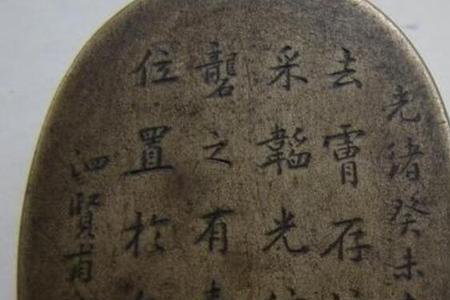 光緒癸未
去存
采韜光
礱之有
位置於
泗賢甫